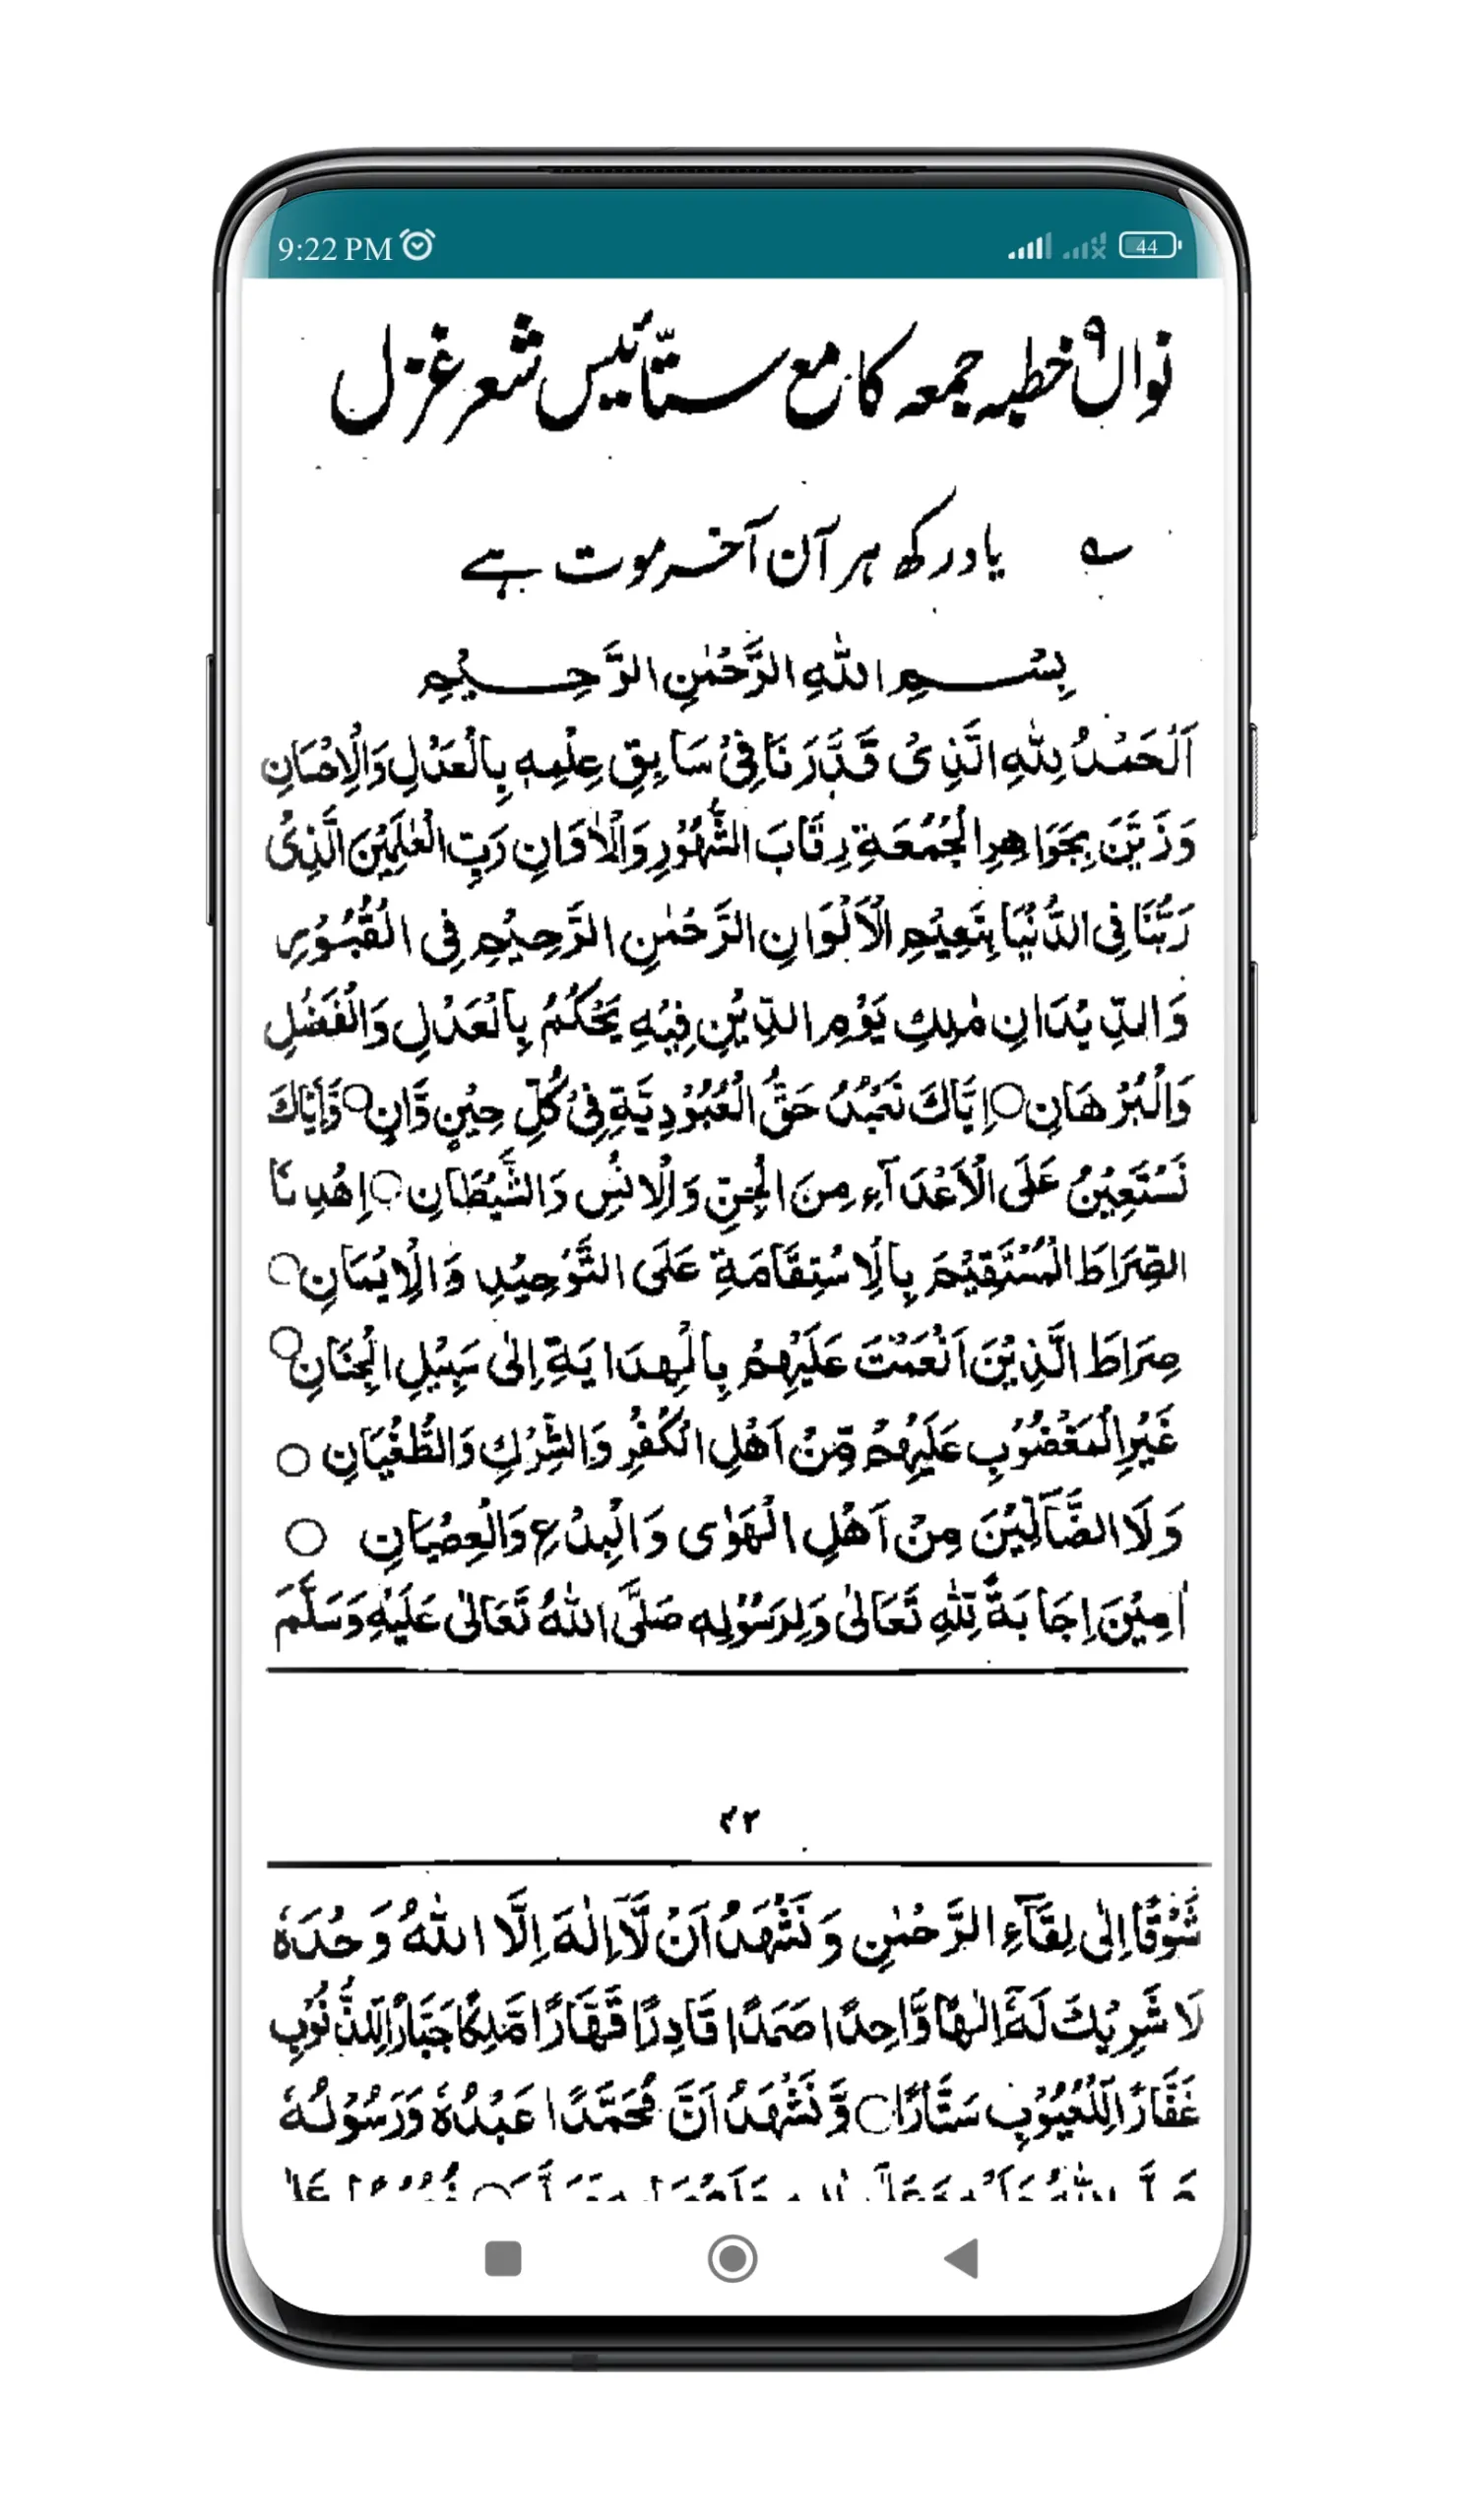 9:22 PM
44
نواں ۹ خطبہ جمعہ کا مع ستّائیس شعر غزل
یاد رکھ ہر آن آخر موت ہے
بِسْمِ اللهِ الرَّحْمٰنِ الرَّحِيْمِ
اَلْحَمْدُ لِلّٰهِ الَّذِيْ قَدَّرَنَا فِيْ سَابِقِ عِلْمِهٖ بِالْعَدْلِ وَالْاِحْسَانِ
وَزَيَّنَ بِجَوَاهِرِ الْجُمُعَةِ رِقَابَ الشُّهُوْرِ وَالْاَوَانِ رَبِّ الْعٰلَمِيْنَ الَّذِيْ
رَبَّنَا فِي الدُّنْيَا بِنَعِيْمِ الْاَلْوَانِ الرَّحْمٰنِ الرَّحِيْمِ فِي الْقُبُوْرِ
وَالدِّيْدَانِ مٰلِكِ يَوْمِ الدِّيْنِ فِيْهِ يَحْكُمُ بِالْعَدْلِ وَالْفَضْلِ
وَالْبُرْهَانِ ○ اِيَّاكَ نَعْبُدُ حَقَّ الْعُبُوْدِيَّةِ فِيْ كُلِّ حِيْنٍ وَّاٰنٍ ○ وَاِيَّاكَ
نَسْتَعِيْنُ عَلَى الْاَعْدَآءِ مِنَ الْجِنِّ وَالْاِنْسِ وَالشَّيْطَانِ ○ اِهْدِنَا
الصِّرَاطَ الْمُسْتَقِيْمَ بِالْاِسْتِقَامَةِ عَلَى التَّوْحِيْدِ وَالْاِيْمَانِ ○
صِرَاطَ الَّذِيْنَ اَنْعَمْتَ عَلَيْهِمْ بِالْهِدَايَةِ اِلٰى سَبِيْلِ الْجِنَانِ ○
غَيْرِ الْمَغْضُوْبِ عَلَيْهِمْ مِّنْ اَهْلِ الْكُفْرِ وَالشِّرْكِ وَالطُّغْيَانِ ○
وَلَا الضَّآلِّيْنَ مِنْ اَهْلِ الْهَوٰى وَالْبِدْعِ وَالْعِصْيَانِ ○
اٰمِيْنَ اِجَابَةً لِلّٰهِ تَعَالٰى وَلِرَسُوْلِهٖ صَلَّى اللهُ تَعَالٰى عَلَيْهِ وَسَلَّمَ
۲۲
شَوْقًا اِلٰى لِقَآءِ الرَّحْمٰنِ وَنَشْهَدُ اَنْ لَّآ اِلٰهَ اِلَّا اللهُ وَحْدَهٗ
لَا شَرِيْكَ لَهٗ اِلٰهًا وَّاحِدًا صَمَدًا قَادِرًا قَهَّارًا مَّلِكًا جَبَّارًا لِلذُّنُوْبِ
غَفَّارًا لِلْعُيُوْبِ سَتَّارًا ○ وَّنَشْهَدُ اَنَّ مُحَمَّدًا عَبْدُهٗ وَرَسُوْلُهٗ